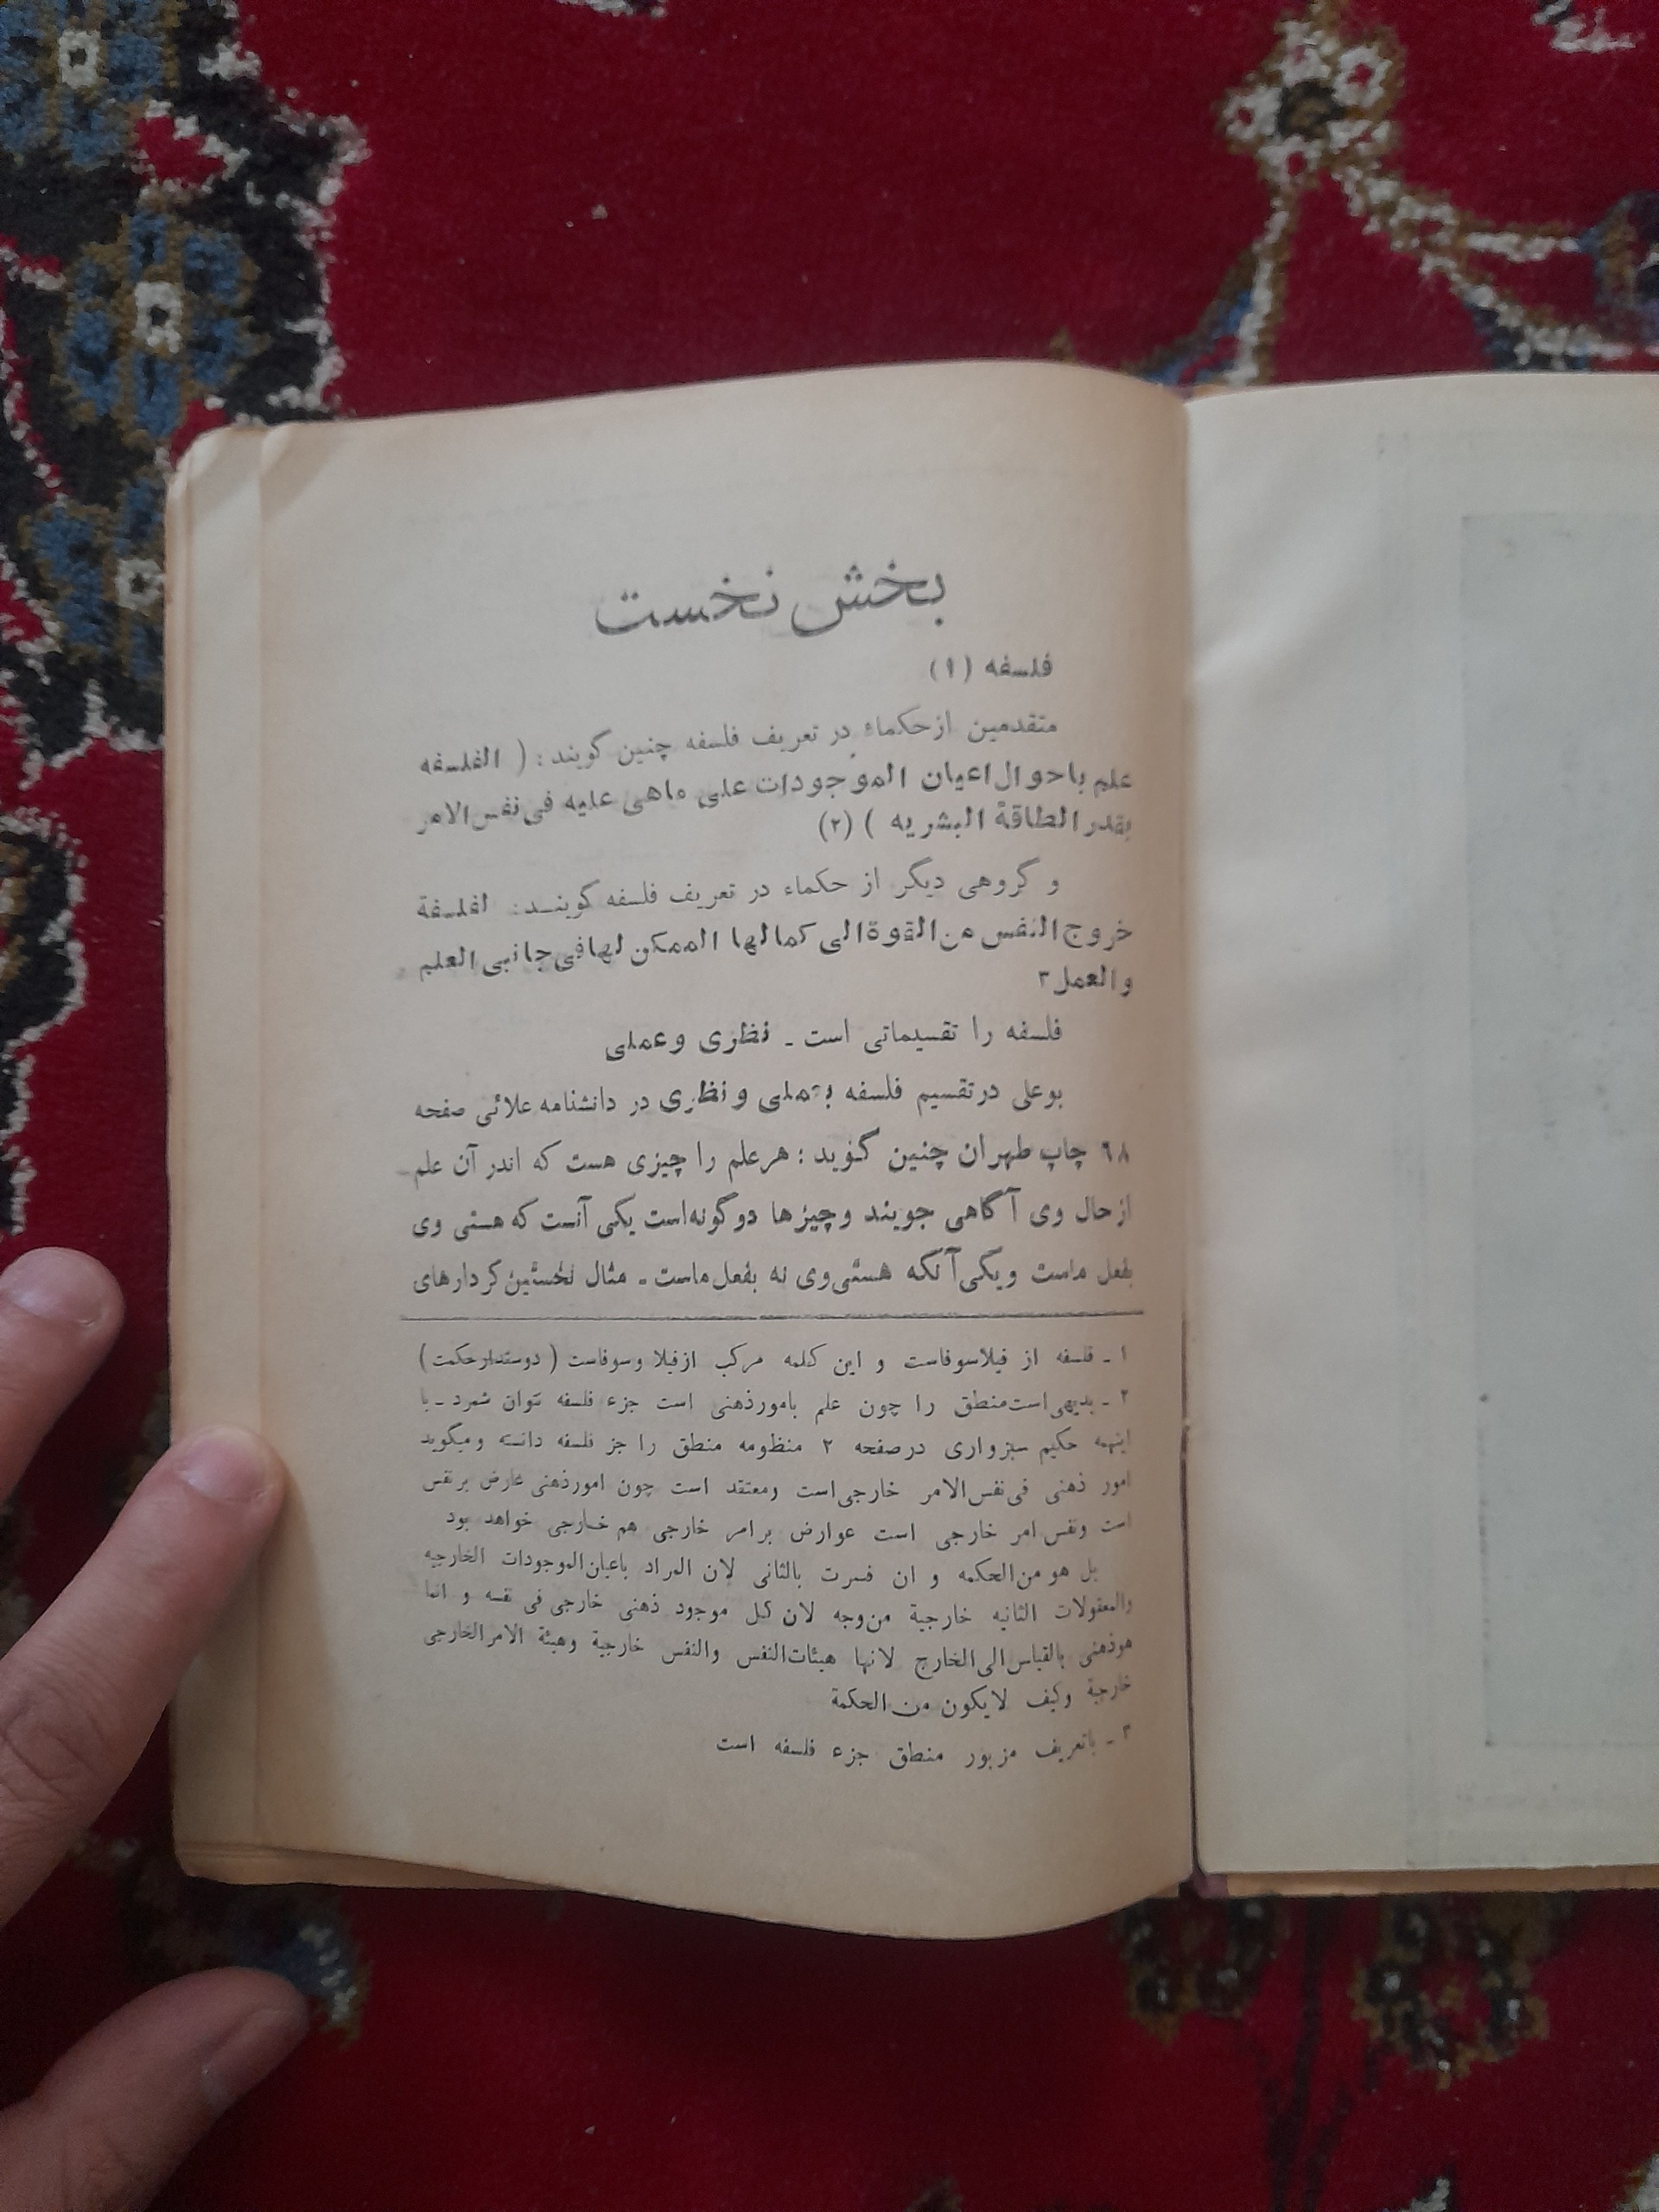 بخش نخست
فلسفه (۱)
متقدمین ازحکماء در تعریف فلسفه چنین گویند: ( الفلسفه
علم باحوال اعیان الموجودات علی ماهی علیه فی نفس الامر
بقدر الطاقة البشریه ) (۲)
و گروهی دیگر از حکماء در تعریف فلسفه گوینـد: الفلسفة
خروج النفس من القوة الی کمالها الممکن لها فی جانبی العلم
والعمل ۳
فلسفه را تقسیماتی است ـ نظری وعملی
بوعلی درتقسیم فلسفه بعملی و نظری در دانشنامه علائی صفحه
٦٨ چاپ طهران چنین گوید : هرعلم را چیزی هست که اندر آن علم
ازحال وی آگاهی جویند وچیزها دوگونه‌است یکی آنست که هستی وی
بفعل ماست ویکی آنکه هستی‌وی نه بفعل‌ماست ـ مثال نخستین کردارهای
۱ ـ فلسفه از فیلاسوفاست و این کلمه مرکب ازفیلا وسوفاست ( دوستدارحکمت)
۲ ـ بدیهی‌است‌منطق را چون علم بامورذهنی است جزء فلسفه نتوان شمرد ـ با
اینهمه حکیم سبزواری درصفحه ۲ منظومه منطق را جز فلسفه دانسته ومیگوید
امور ذهنی فی‌نفس‌الامر خارجی‌است ومعتقد است چون امورذهنی عارض برنفس
است ونفس امر خارجی است عوارض برامر خارجی هم خـارجی خواهد بود
بل هو من‌الحکمه و ان فسرت بالثانی لان المراد باعیان‌الموجودات الخارجیه
والمعقولات الثانیه خارجیة من‌وجه لان کل موجود ذهنی خارجی فی نفسه و انما
هوذهنی بالقیاس‌الی‌الخارج لانها هیئات‌النفس والنفس خارجیة وهیئة الامرالخارجی
خارجیة وکیف لایکون من‌الحکمة
۳ ـ باتعریف مزبور منطق جزء فلسفه است